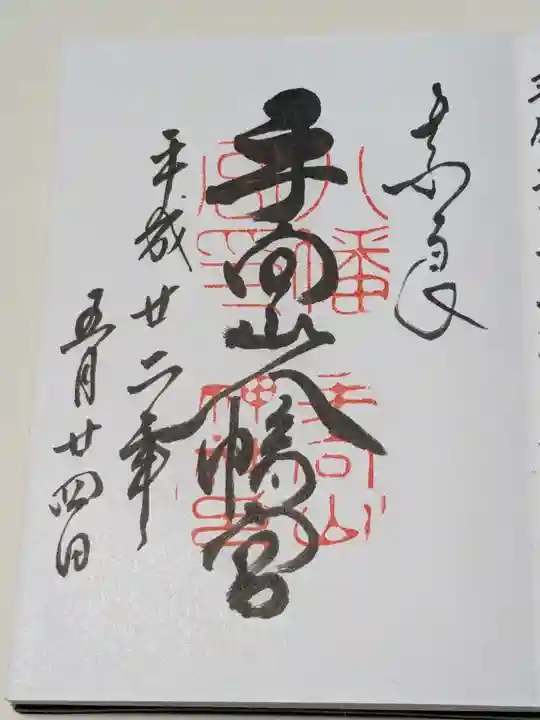 奈良
手向山八幡宮
平成廿二年
五月廿四日